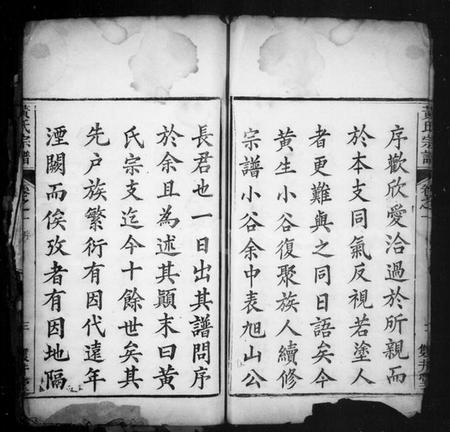 序歡欣愛洽過於所親而
於本支同氣反視若塗人
者更難與之同日語矣今
黃生小谷復聚族人續修
宗譜小谷余中表旭山公
長君也一日出其譜問序
於余且為述其顛末曰黃
氏宗支迄今十餘世矣其
先户族繁衍有因代遠年
湮闕而俟攷者有因地隔
黃氏宗譜
卷之一
序
黃氏宗譜
卷之一